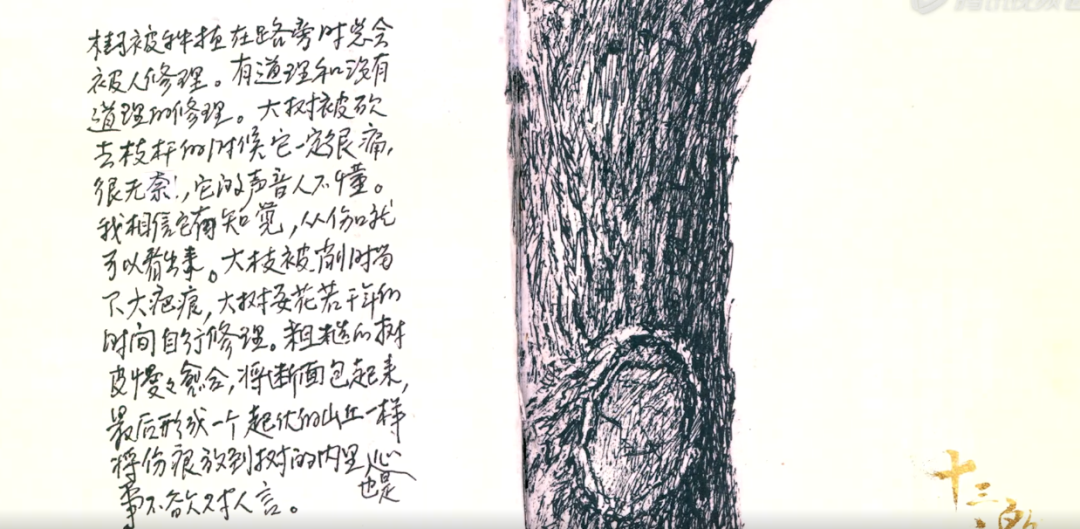 树被种植在路旁时总会
被人修理。有道理和没有
道理的修理。大树被砍
去枝杆的时候它一定很痛，
很无奈！，它的声音人不懂。
我相信它有知觉，从伤口就
可以看出来。大枝被削时留
下大疤痕，大树要花若干年的
时间自行修理。粗糙的树
皮慢々愈合，将断面包起来，
最后形成一个起伏的山丘一样
将伤痕放到树的内里心
也是
事不欲对人言。
十三邀